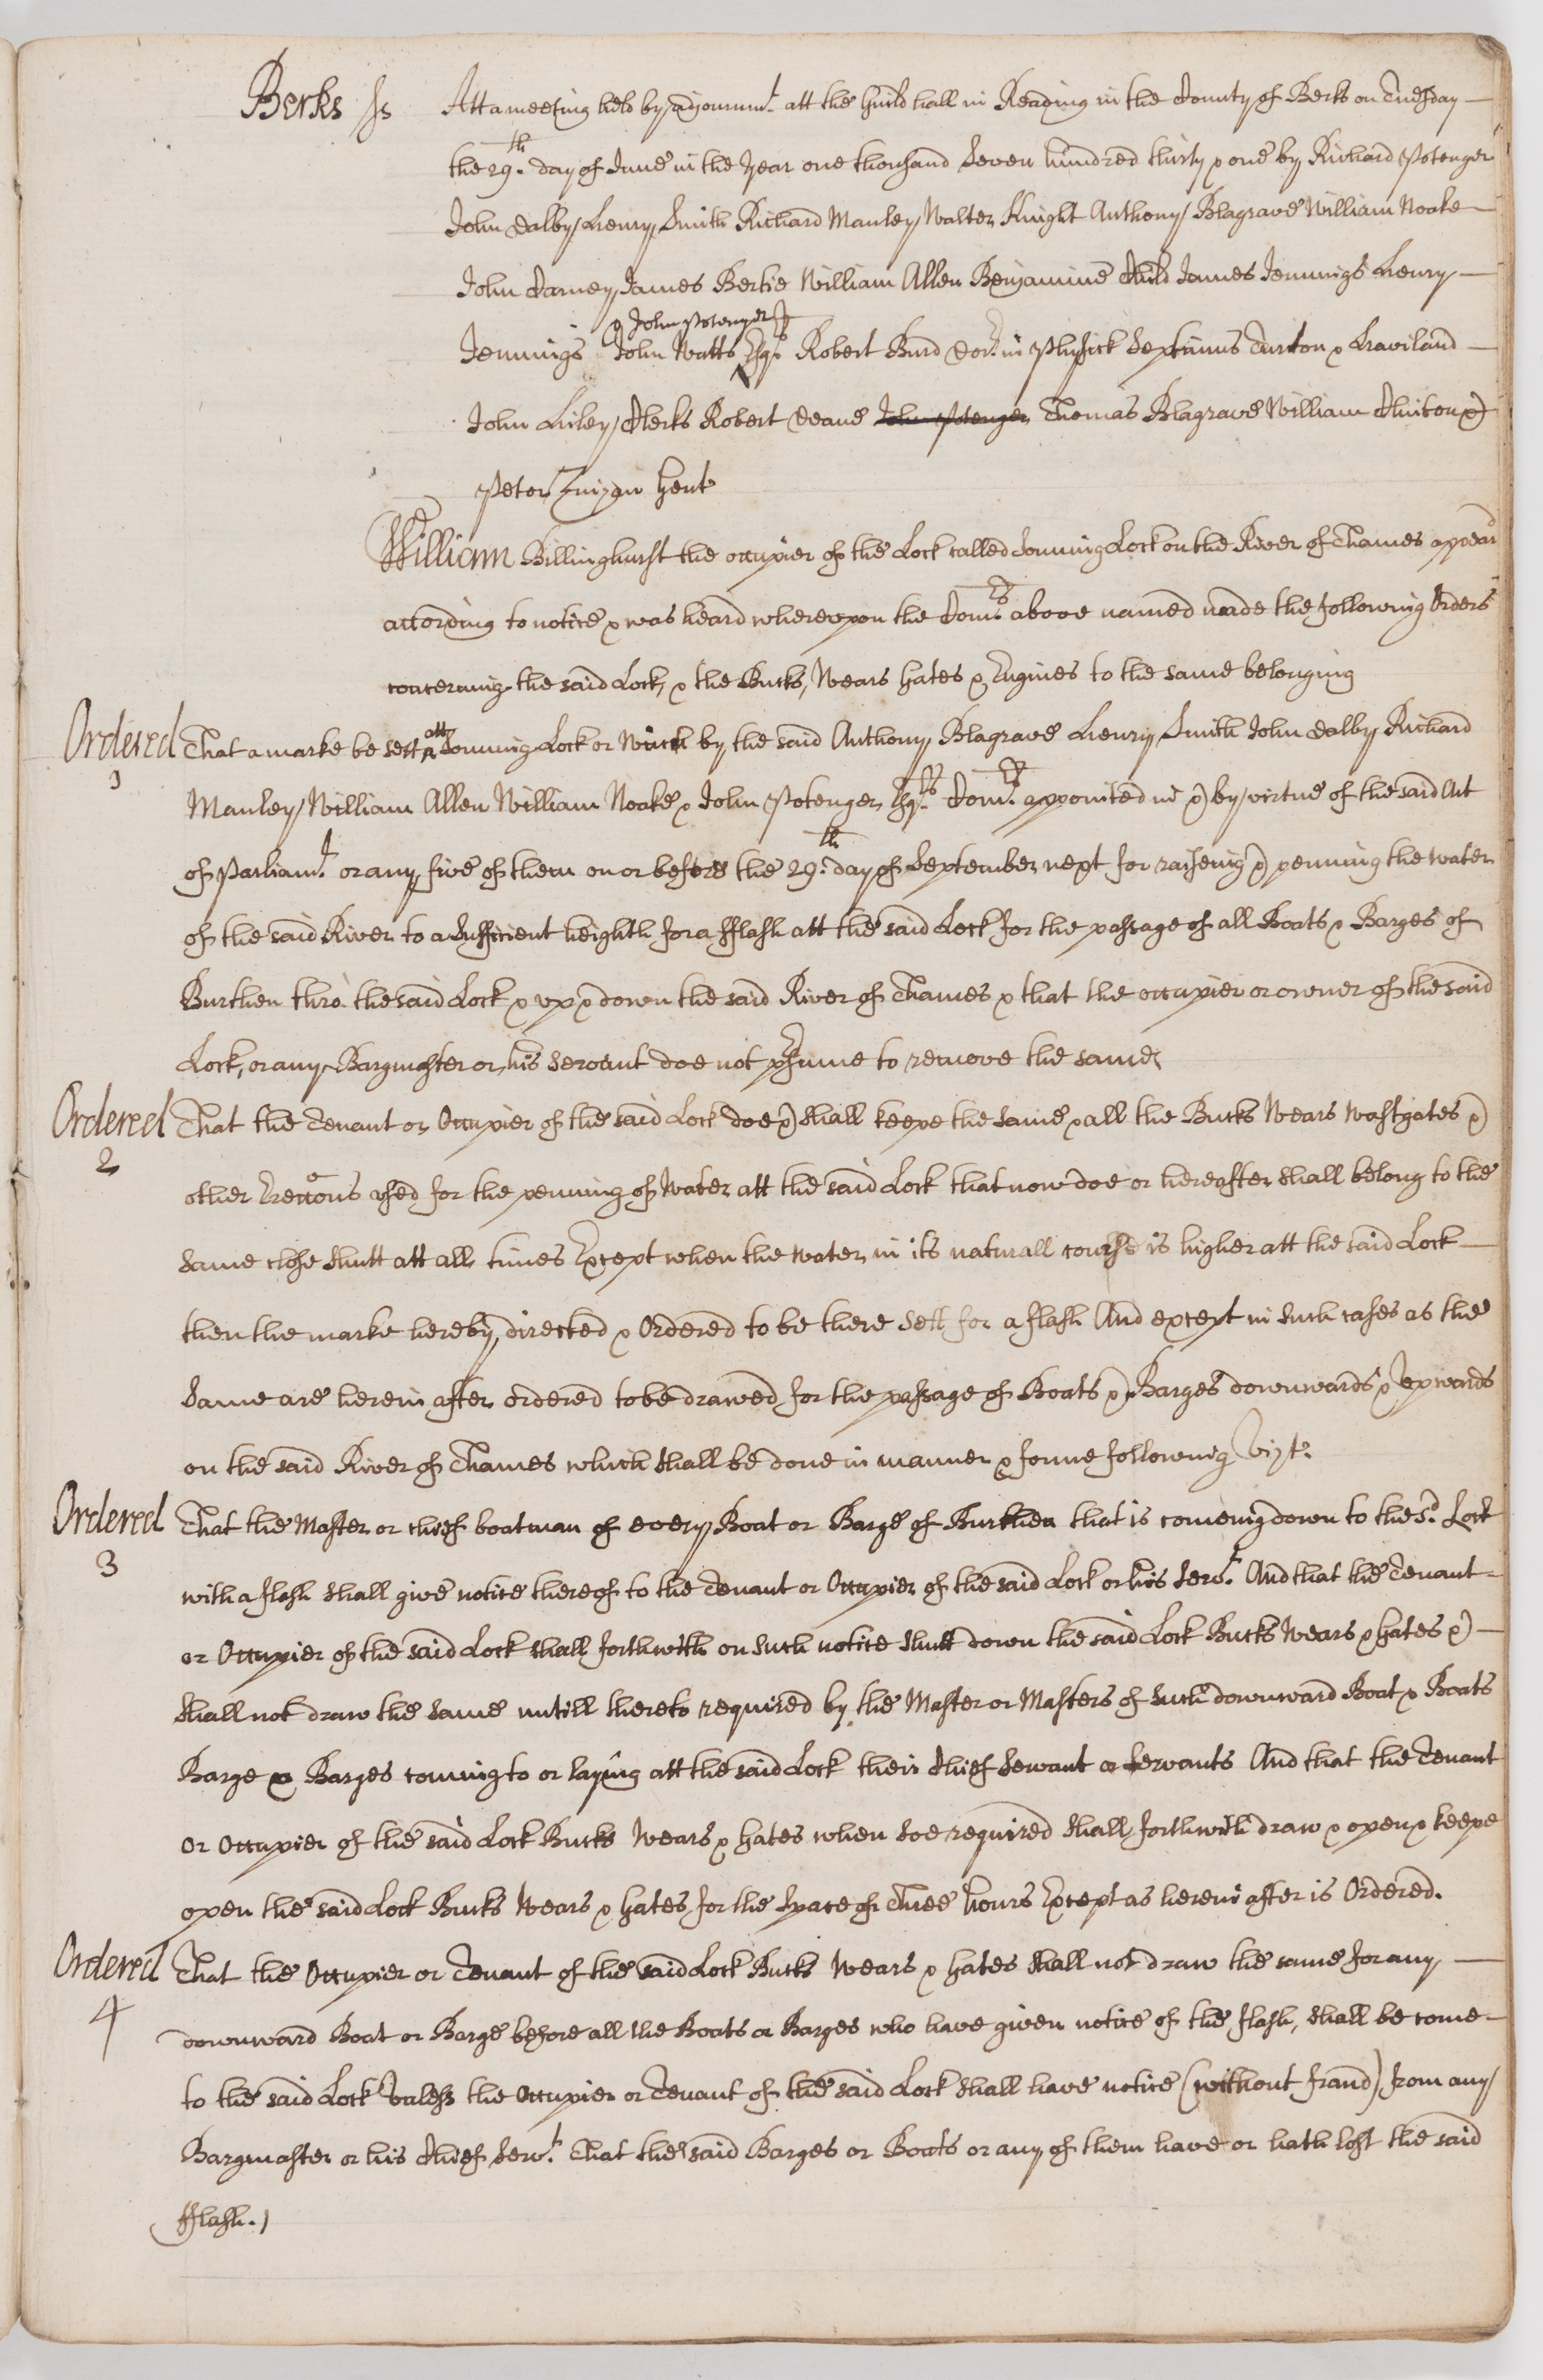 Berks ss Att a meeting held by adjournmt. att the Guild hall in Reading in the County of Berks on Tuesday
the 29th. day of June in the Year one thousand Seven hundred thirty & one by Richard Potenger
John Dalby Henry Smith Richard Manley Walter Knight Anthony Blagrave William Noake
John Carney James Bertie William Allen Benjamine Child James Jennings Henry
& John Potenger
Jennings John Watts Esqrs. Robert Burd Docr. in Phisick Septimus & Haviland
John Hiley Clerks Robert Deane John Potenger Thomas Blagrave William Clinton &
Peter Zinzan Gent
William Billinghurst the occupier of the Lock called Sonning Lock on the River of Thames appeard
according to notice & was heard whereupon the Comrs. above named made the following Orders
concerning the said Lock, & the Bucks, Wears Gates & Engines to the same belonging
Ordered 1 That a marke be sett att Sonning Lock or by the said Anthony Blagrave Henry Smith John Dalby Richard
Manley William Allen William Noake & John Potenger Esqrs. Comrs. appointed in & by virtue of the said Act
of Parliamt. or any five of them on or before the 29th. day of September next for raiseing & penning the water
of the said River to a Sufficient heighth for a fflash att the said Lock for the passage of all Boats & Barges of
Burthen thro' the said Lock & up & down the said River of Thames & that the occupier or owner of the said
Lock, or any Bargmaster or his Servant doe not p̱sume to remove the same
Ordered 2 That the Tenant or Occupier of the said Lock doe & shall keepe the same & all the Bucks Wears Wastgates &
other Erecc̃ons used for the penning of Water att the said Lock that now doe or hereafter shall belong to the
same close shutt att all times Except when the Water in its naturall course is higher att the said Lock
then the marke hereby directed & Ordered to be there sett for a flash And except in such cases as the
same are herein after ordered to be drawed for the passage of Boats & Barges downwards & Upwards
on the said River of Thames which shall be done in manner & forme following Vizt.
Ordered 3 That the Master or chief boatman of every Boat or Barge of Burthen that is comeing down to the sd. Lock
with a flash shall give notice thereof to the Tenant or Occupier of the said Lock or his Servt. And that the Tenant
or Occupier of the said Lock shall forthwith on such notice shutt down the said Lock Bucks Wears & Gates &
shall not draw the same untill thereto required by the Master or Masters of such downward Boat & Boats
Barge & Barges coming to or laying att the said Lock their Chief Servant or Servants And that the Tenant
or Occupier of the said Lock Bucks Wears & Gates when soe required shall forthwith draw & open & keepe
open the said Lock Bucks Wears & Gates for the space of Three hours Except as herein after is Ordered.
Ordered 4 That the Occupier or Tenant of the said Lock Bucks Wears & Gates shall not draw the same for any
downward Boat or Barge before all the Boats or Barges who have given notice of the flash, shall be come
to the said Lock Unless the Occupier or Tenant of the said Lock shall have notice (without fraud) from any
Bargmaster or his Chief Servt. That the said Barges or Boats or any of them have or hath lost the said
fflash.